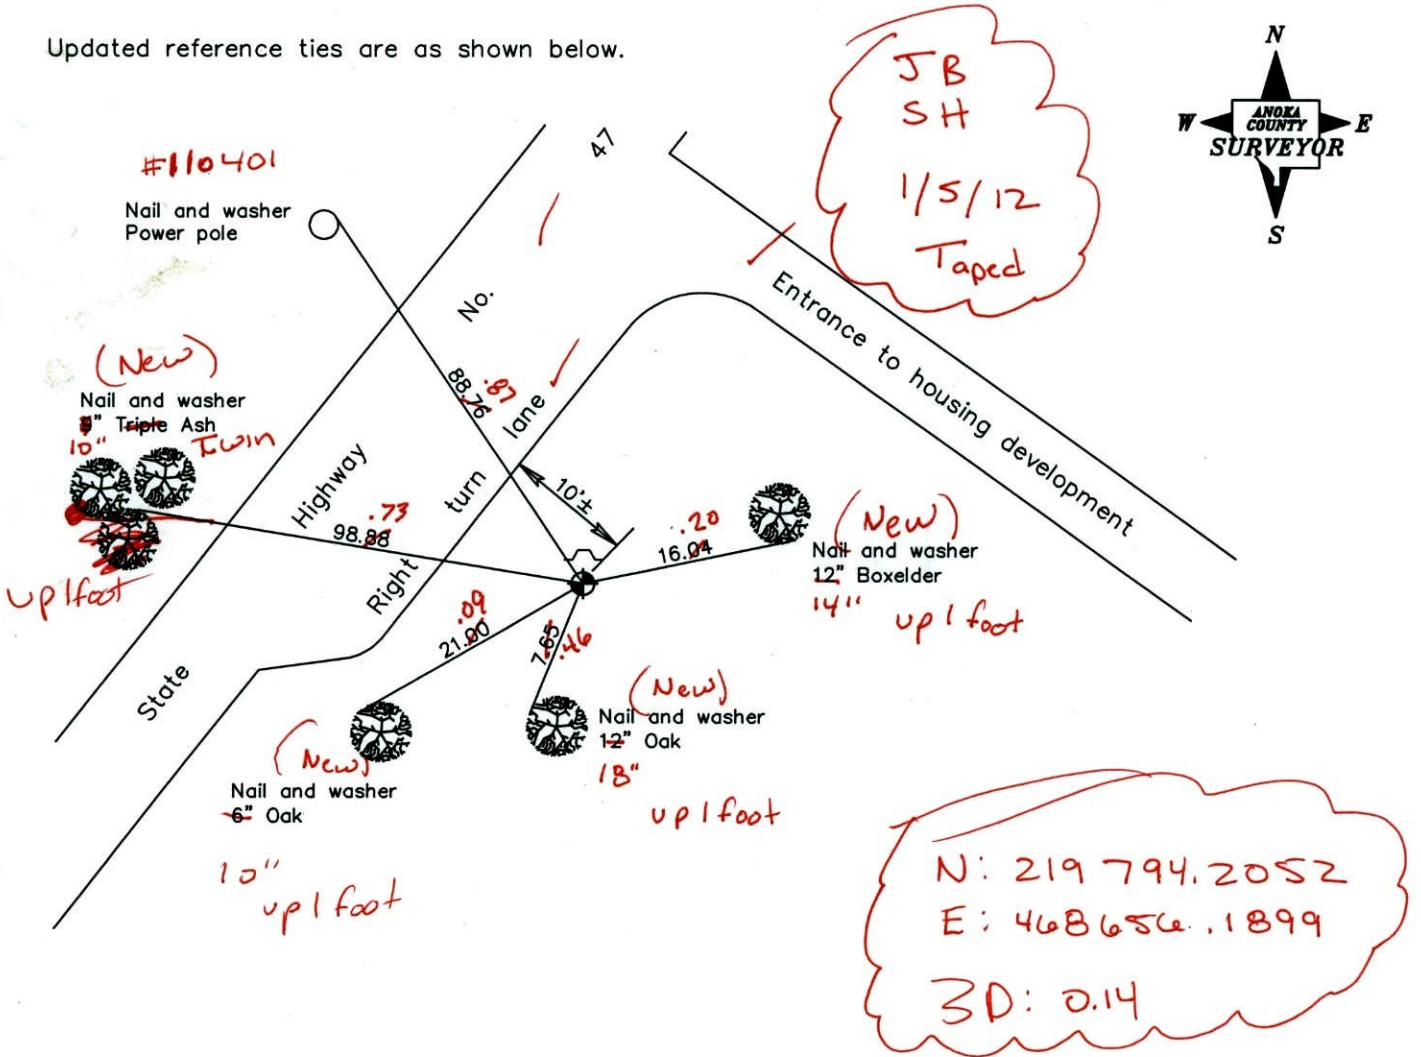 Updated reference ties are as shown below.
JB
SH
1/5/12
Taped
N
W
ANOKA
COUNTY
SURVEYOR
E
S
#110401
Nail and washer
Power pole
47
No.
Entrance to housing development
(New)
Nail and washer
" Triple Ash
10"
Twin
up 1 foot
88.76
.87
lane
turn
Right
Highway
State
10'±
98.88
.73
16.04
.20
(New)
Nail and washer
12" Boxelder
14"
up 1 foot
21.00
.09
7.65
.46
(New)
Nail and washer
12" Oak
18"
up 1 foot
(New)
Nail and washer
6" Oak
10"
up 1 foot
N: 219 794.2052
E: 468656.1899
3D: 0.14